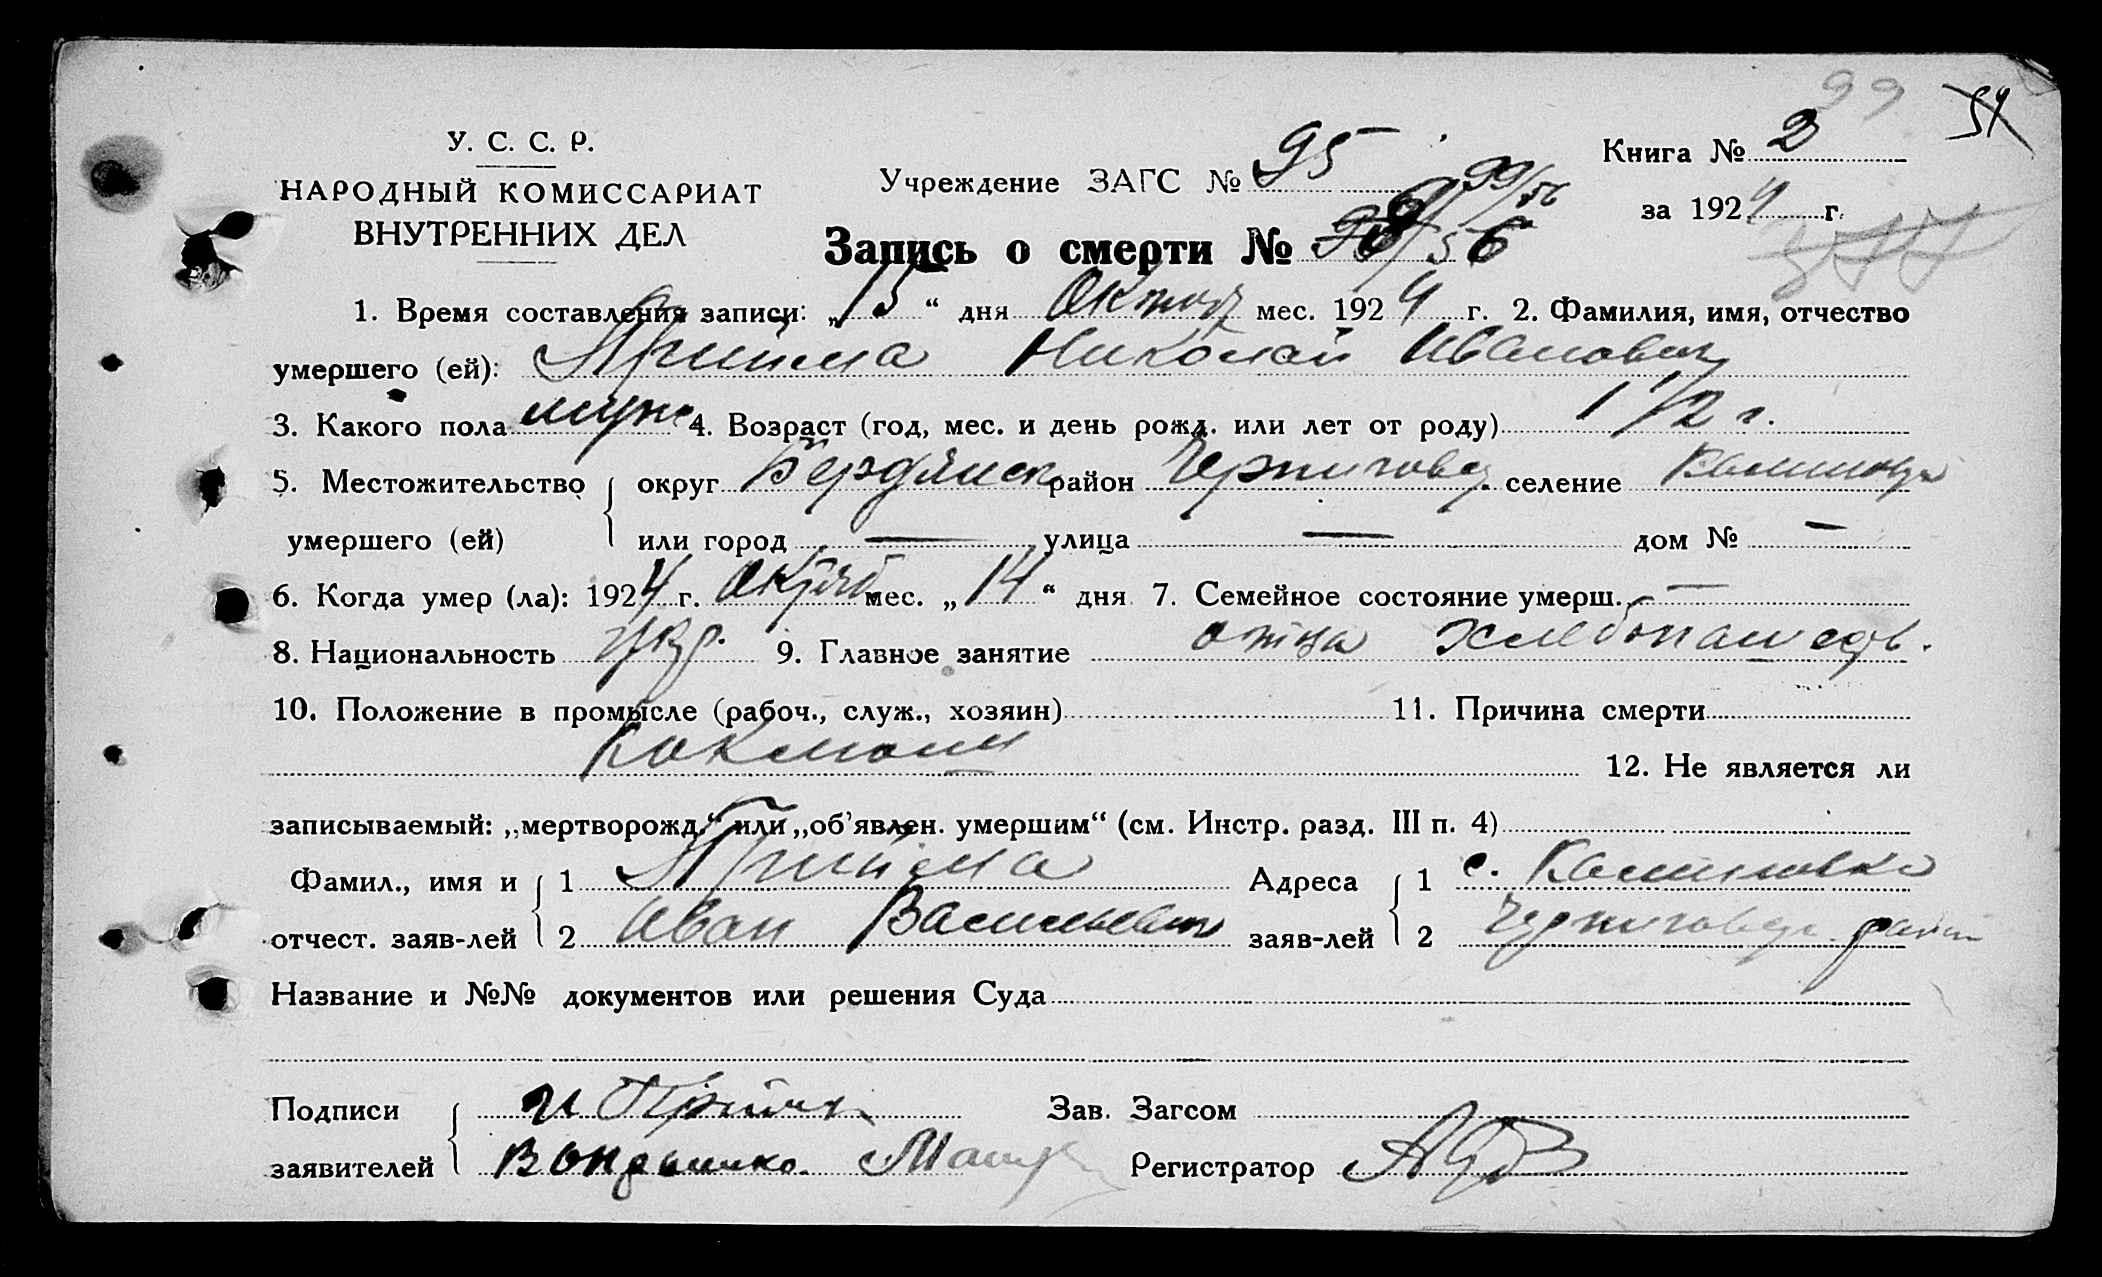 99 54
У. С. С. Р.
НАРОДНЫЙ КОМИССАРИАТ
ВНУТРЕННИХ ДЕЛ
Учреждение ЗАГС № 95
Книга № 2
за 1924 г.
99/56
Запись о смерти № 56
1. Время составления записи: „15“ дня Октяб мес. 1924 г. 2. Фамилия, имя, отчество
умершего (ей): Прийма Николай Иванович
3. Какого пола муж 4. Возраст (год, мес. и день рожд. или лет от роду) 1 1/2 г.
5. Местожительство округ Бердянск район Черниговск. селение Калиновка
умершего (ей) или город — улица — дом № —
6. Когда умер (ла): 1924 г. Октяб мес. „14“ дня 7. Семейное состояние умерш. —
8. Национальность укр. 9. Главное занятие отца хлебопашество.
10. Положение в промысле (рабоч., служ., хозяин) 11. Причина смерти
Коклюш 12. Не является ли
записываемый: „мертворожд.“ или „об'явлен. умершим“ (см. Инстр. разд. III п. 4)
Фамил., имя и 1 Прийма Адреса 1 с. Калиновка
отчест. заяв-лей 2 Иван Васильевич заяв-лей 2 Черниговск. район
Название и №№ документов или решения Суда
Подписи И Прийма Зав. Загсом
заявителей Регистратор